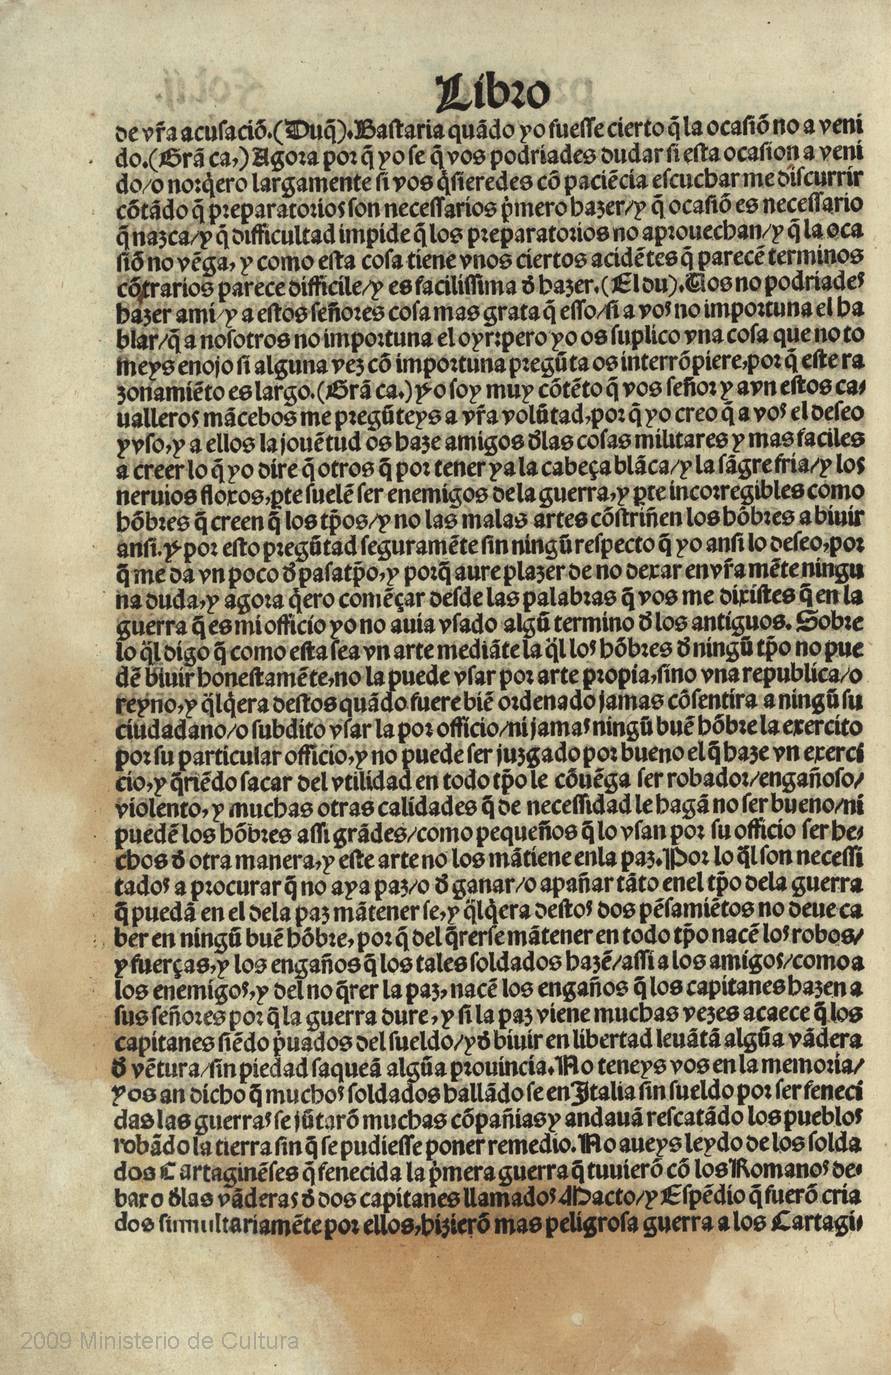 Libro
de vr̃a acusaciō.(Duq̃).Bastaria quādo yo fuesse cierto q̃ la ocasiō no a veni
do.(Grā ca,)Agora por q̃ yo se q̃ vos podriades dudar si esta ocasion a veni
do/o no:q̇ero largamente si vos q̇sieredes cō paciēcia escuchar me discurrir
cōtādo q̃ preparatorios son necessarios ṗmero hazer/y q̃ ocasiō es necessario
q̃ nazca/y q̃ difficultad impide q̃ los preparatorios no aprouechan/y q̃ la oca
siō no vēga, y como esta cosa tiene vnos ciertos acidētes q̃ parecē terminos
cōtrarios parece difficile/y es facilissima đ hazer.(El du).Uos no podriades
hazer a mi/y a estos señores cosa mas grata q̃ esso/si a vos no importuna el ha
blar/q̃ a nosotros no importuna el oyr:pero yo os suplico vna cosa que no to
meys enojo si alguna vez cō importuna pregūta os interrōpiere,por q̃ este ra
zonamiēto es largo.(Grā ca.)Yo soy muy cōtēto q̃ vos señor y avn estos ca-
ualleros mācebos me pregūteys a vr̃a volūtad,por q̃ yo creo q̃ a vos el deseo
y vso,y a ellos la jouētud os haze amigos đlas cosas militares y mas faciles
a creer lo q̃ yo dire q̃ otros q̃ por tener ya la cabeça blāca/y la sāgre fria/y los
neruios floxos,ꝑte suelē ser enemigos de la guerra,y ꝑte incorregibles como
hōbres q̃ creen q̃ los tp̄os/y no las malas artes cōstriñen los hōbres a biuir
ansi.Y por esto pregūtad seguramēte sin ningū respecto q̃ yo ansi lo deseo,por
q̃ me da vn poco đ pasatp̄o,y porq̃ aure plazer de no dexar en vr̃a mēte ningu
na duda,y agora q̇ero comēçar desde las palabras q̃ vos me dixistes q̃ en la
guerra q̃ es mi officio yo no auia vsado algū termino đ los antiguos. Sobre
lo q̃l digo q̃ como esta sea vn arte mediāte la q̃l los hōbres đ ningū tp̄o no pue
dē biuir honestamēte,no la puede vsar por arte propia,sino vna republica/o
reyno,y q̃lq̇era destos quādo fuere biē ordenado jamas cōsentira a ningū su
ciudadano/o subdito vsar la por officio/ni jamas ningū buē hōbre la exercito
por su particular officio,y no puede ser juzgado por bueno el q̃ haze vn exerci
cio,y q̃riēdo sacar del vtilidad en todo tp̄o le cōuēga ser robador/engañoso/
violento,y muchas otras calidades q̃ de necessidad le hagā no ser bueno/ni
puedē los hōbres assi grādes/como pequeños q̃ lo vsan por su officio ser he-
chos đ otra manera,y este arte no los mātiene enla paz.Por lo q̃l son necessi
tados a procurar q̃ no aya paz/o đ ganar/o apañar tāto enel tp̄o dela guerra
q̃ puedā en el dela paz mātener se,y q̃lq̇era destos dos pēsamiētos no deue ca
ber en ningū buē hōbre, por q̃ del q̃rerse mātener en todo tp̄o nacē los robos/
y fuerças,y los engaños q̃ los tales soldados hazē/assi a los amigos/como a
los enemigos,y del no q̃rer la paz,nacē los engaños q̃ los capitanes hazen a
sus señores por q̃ la guerra dure, y si la paz viene muchas vezes acaece q̃ los
capitanes siēdo ṗuados del sueldo/y đ biuir en libertad leuātā algūa vādera
đ vētura/sin piedad saqueā algūa prouincia.No teneys vos en la memoria/
y os an dicho q̃ muchos soldados hallādo se en Italia sin sueldo por ser feneci
das las guerras se jūtarō muchas cōpañias y andauā rescatādo los pueblos
robādo la tierra sin q̃ se pudiesse poner remedio.No aueys leydo de los solda
dos Cartaginēses q̃ fenecida la ṗmera guerra q̃ tuuierō cō los Romanos de-
baxo đlas vāderas đ dos capitanes llamados Macto/y Espēdio q̃ fuerō cria
dos simultariamēte por ellos,hizierō mas peligrosa guerra a los Cartagi-
2009 Ministerio de Cultura